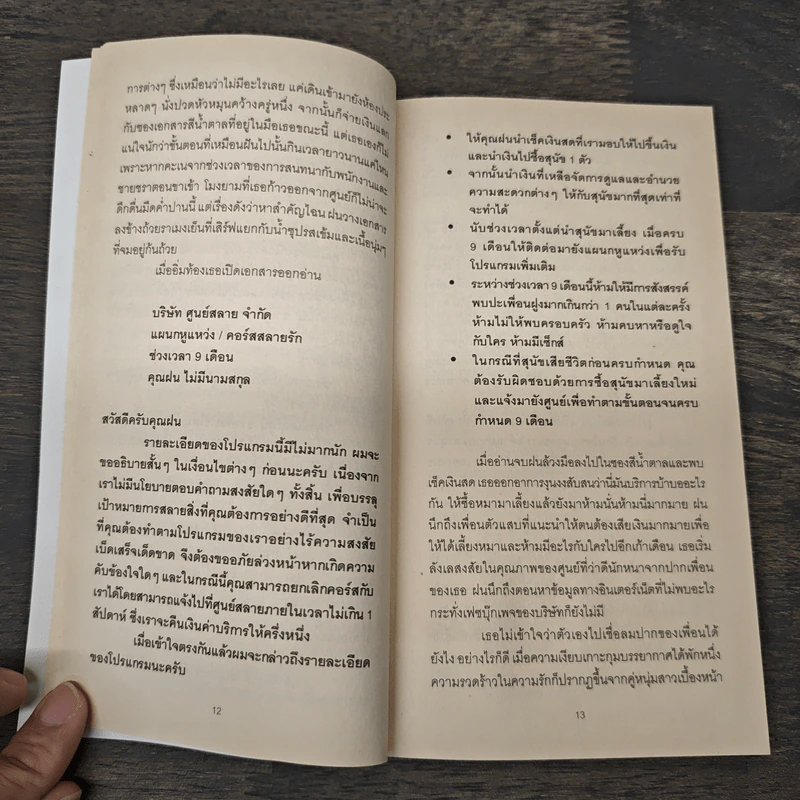 การต่างๆ ซึ่งเหมือนว่าไม่มีอะไรเลย แค่เดินเข้ามายังห้องประ
หลาดๆ นั่งปวดหัวหมุนคว้างครู่หนึ่ง จากนั้นก็จ่ายเงินแลก
กับซองเอกสารสีน้ำตาลที่อยู่ในมือเธอขณะนี้ แต่เธอเองก็ไม่
แน่ใจนักว่าขั้นตอนที่เหมือนฝันไปนั้นกินเวลายาวนานแค่ไหน
เพราะหากคะเนจากช่วงเวลาของการสนทนากับพนักงานและ
ชายชราตอนขาเข้า โมงยามที่เธอก้าวออกจากศูนย์ก็ไม่น่าจะ
ดึกดื่นมืดค่ำปานนี้ แต่เรื่องดังว่าหาสำคัญไฉน ฝนวางเอกสาร
ลงข้างถ้วยราเมงเย็นที่เสิร์ฟแยกกับน้ำซุปรสเข้มและเนื้อนุ่มๆ
ที่จมอยู่ก้นถ้วย
เมื่ออิ่มท้องเธอเปิดเอกสารออกอ่าน
บริษัท ศูนย์สลาย จำกัด
แผนกหูแหว่ง / คอร์สสลายรัก
ช่วงเวลา 9 เดือน
คุณฝน ไม่มีนามสกุล
สวัสดีครับคุณฝน
รายละเอียดของโปรแกรมนี้มีไม่มากนัก ผมจะ
ขออธิบายสั้นๆ ในเงื่อนไขต่างๆ ก่อนนะครับ เนื่องจาก
เราไม่มีนโยบายตอบคำถามสงสัยใดๆ ทั้งสิ้น เพื่อบรรลุ
เป้าหมายการสลายสิ่งที่คุณต้องการอย่างดีที่สุด จำเป็น
ที่คุณต้องทำตามโปรแกรมของเราอย่างไร้ความสงสัย
เบ็ดเสร็จเด็ดขาด จึงต้องขออภัยล่วงหน้าหากเกิดความ
คับข้องใจใดๆ และในกรณีนี้คุณสามารถยกเลิกคอร์สกับ
เราได้โดยสามารถแจ้งไปที่ศูนย์สลายภายในเวลาไม่เกิน 1
สัปดาห์ ซึ่งเราจะคืนเงินค่าบริการให้ครึ่งหนึ่ง
เมื่อเข้าใจตรงกันแล้วผมจะกล่าวถึงรายละเอียด
ของโปรแกรมนะครับ
12
• ให้คุณฝนนำเช็คเงินสดที่เรามอบให้ไปขึ้นเงิน
และนำเงินไปซื้อสุนัข 1 ตัว
• จากนั้นนำเงินที่เหลือจัดการดูแลและอำนวย
ความสะดวกต่างๆ ให้กับสุนัขมากที่สุดเท่าที่
จะทำได้
• นับช่วงเวลาตั้งแต่นำสุนัขมาเลี้ยง เมื่อครบ
9 เดือนให้ติดต่อมายังแผนกหูแหว่งเพื่อรับ
โปรแกรมเพิ่มเติม
• ระหว่างช่วงเวลา 9 เดือนนี้ห้ามให้มีการสังสรรค์
พบปะเพื่อนฝูงมากเกินกว่า 1 คนในแต่ละครั้ง
ห้ามไม่ให้พบครอบครัว ห้ามคบหาหรือดูใจ
กับใคร ห้ามมีเซ็กส์
• ในกรณีที่สุนัขเสียชีวิตก่อนครบกำหนด คุณ
ต้องรับผิดชอบด้วยการซื้อสุนัขมาเลี้ยงใหม่
และแจ้งมายังศูนย์เพื่อทำตามขั้นตอนจนครบ
กำหนด 9 เดือน
เมื่ออ่านจบฝนล้วงมือลงไปในซองสีน้ำตาลและพบ
เช็คเงินสด เธอออกอาการงุนงงสับสนว่านี่มันบริการบ้าบออะไร
กัน ให้ซื้อหมามาเลี้ยงแล้วยังมาห้ามนั่นห้ามนี่มากมาย ฝน
นึกถึงเพื่อนตัวแสบที่แนะนำให้ตนต้องเสียเงินมากมายเพื่อ
ให้ได้เลี้ยงหมาและห้ามมีอะไรกับใครไปอีกเก้าเดือน เธอเริ่ม
ลังเลสงสัยในคุณภาพของศูนย์ที่ว่าดีนักหนาจากปากเพื่อน
ของเธอ ฝนนึกถึงตอนหาข้อมูลทางอินเตอร์เน็ตที่ไม่พบอะไร
กระทั่งเฟซบุ๊กเพจของบริษัทก็ยังไม่มี
เธอไม่เข้าใจว่าตัวเองไปเชื่อลมปากของเพื่อนได้
ยังไง อย่างไรก็ดี เมื่อความเงียบเกาะกุมบรรยากาศได้พักหนึ่ง
ความรวดร้าวในความรักก็ปรากฏขึ้นจากคู่หนุ่มสาวเบื้องหน้า
13